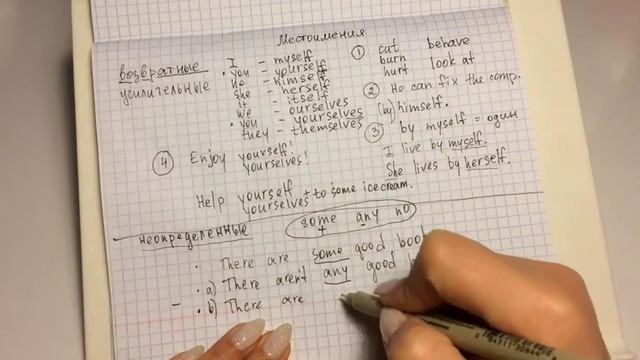 Местоимения
возвратные
усилительные
I - myself
• you - yourself
he - himself
she - herself
it - itself
we - ourselves
• you - yourselves
they - themselves
① cut behave
burn
hurt look at
② He can fix the comp.
(by) himself.
③ by myself = один
I live by myself.
She lives by herself.
④ Enjoy yourself!
yourselves!
Help yourself
yourselves + to some ice cream.
неопределенные
some any no
+ -
• There are some good
• a) There aren't any good
- • b) There are